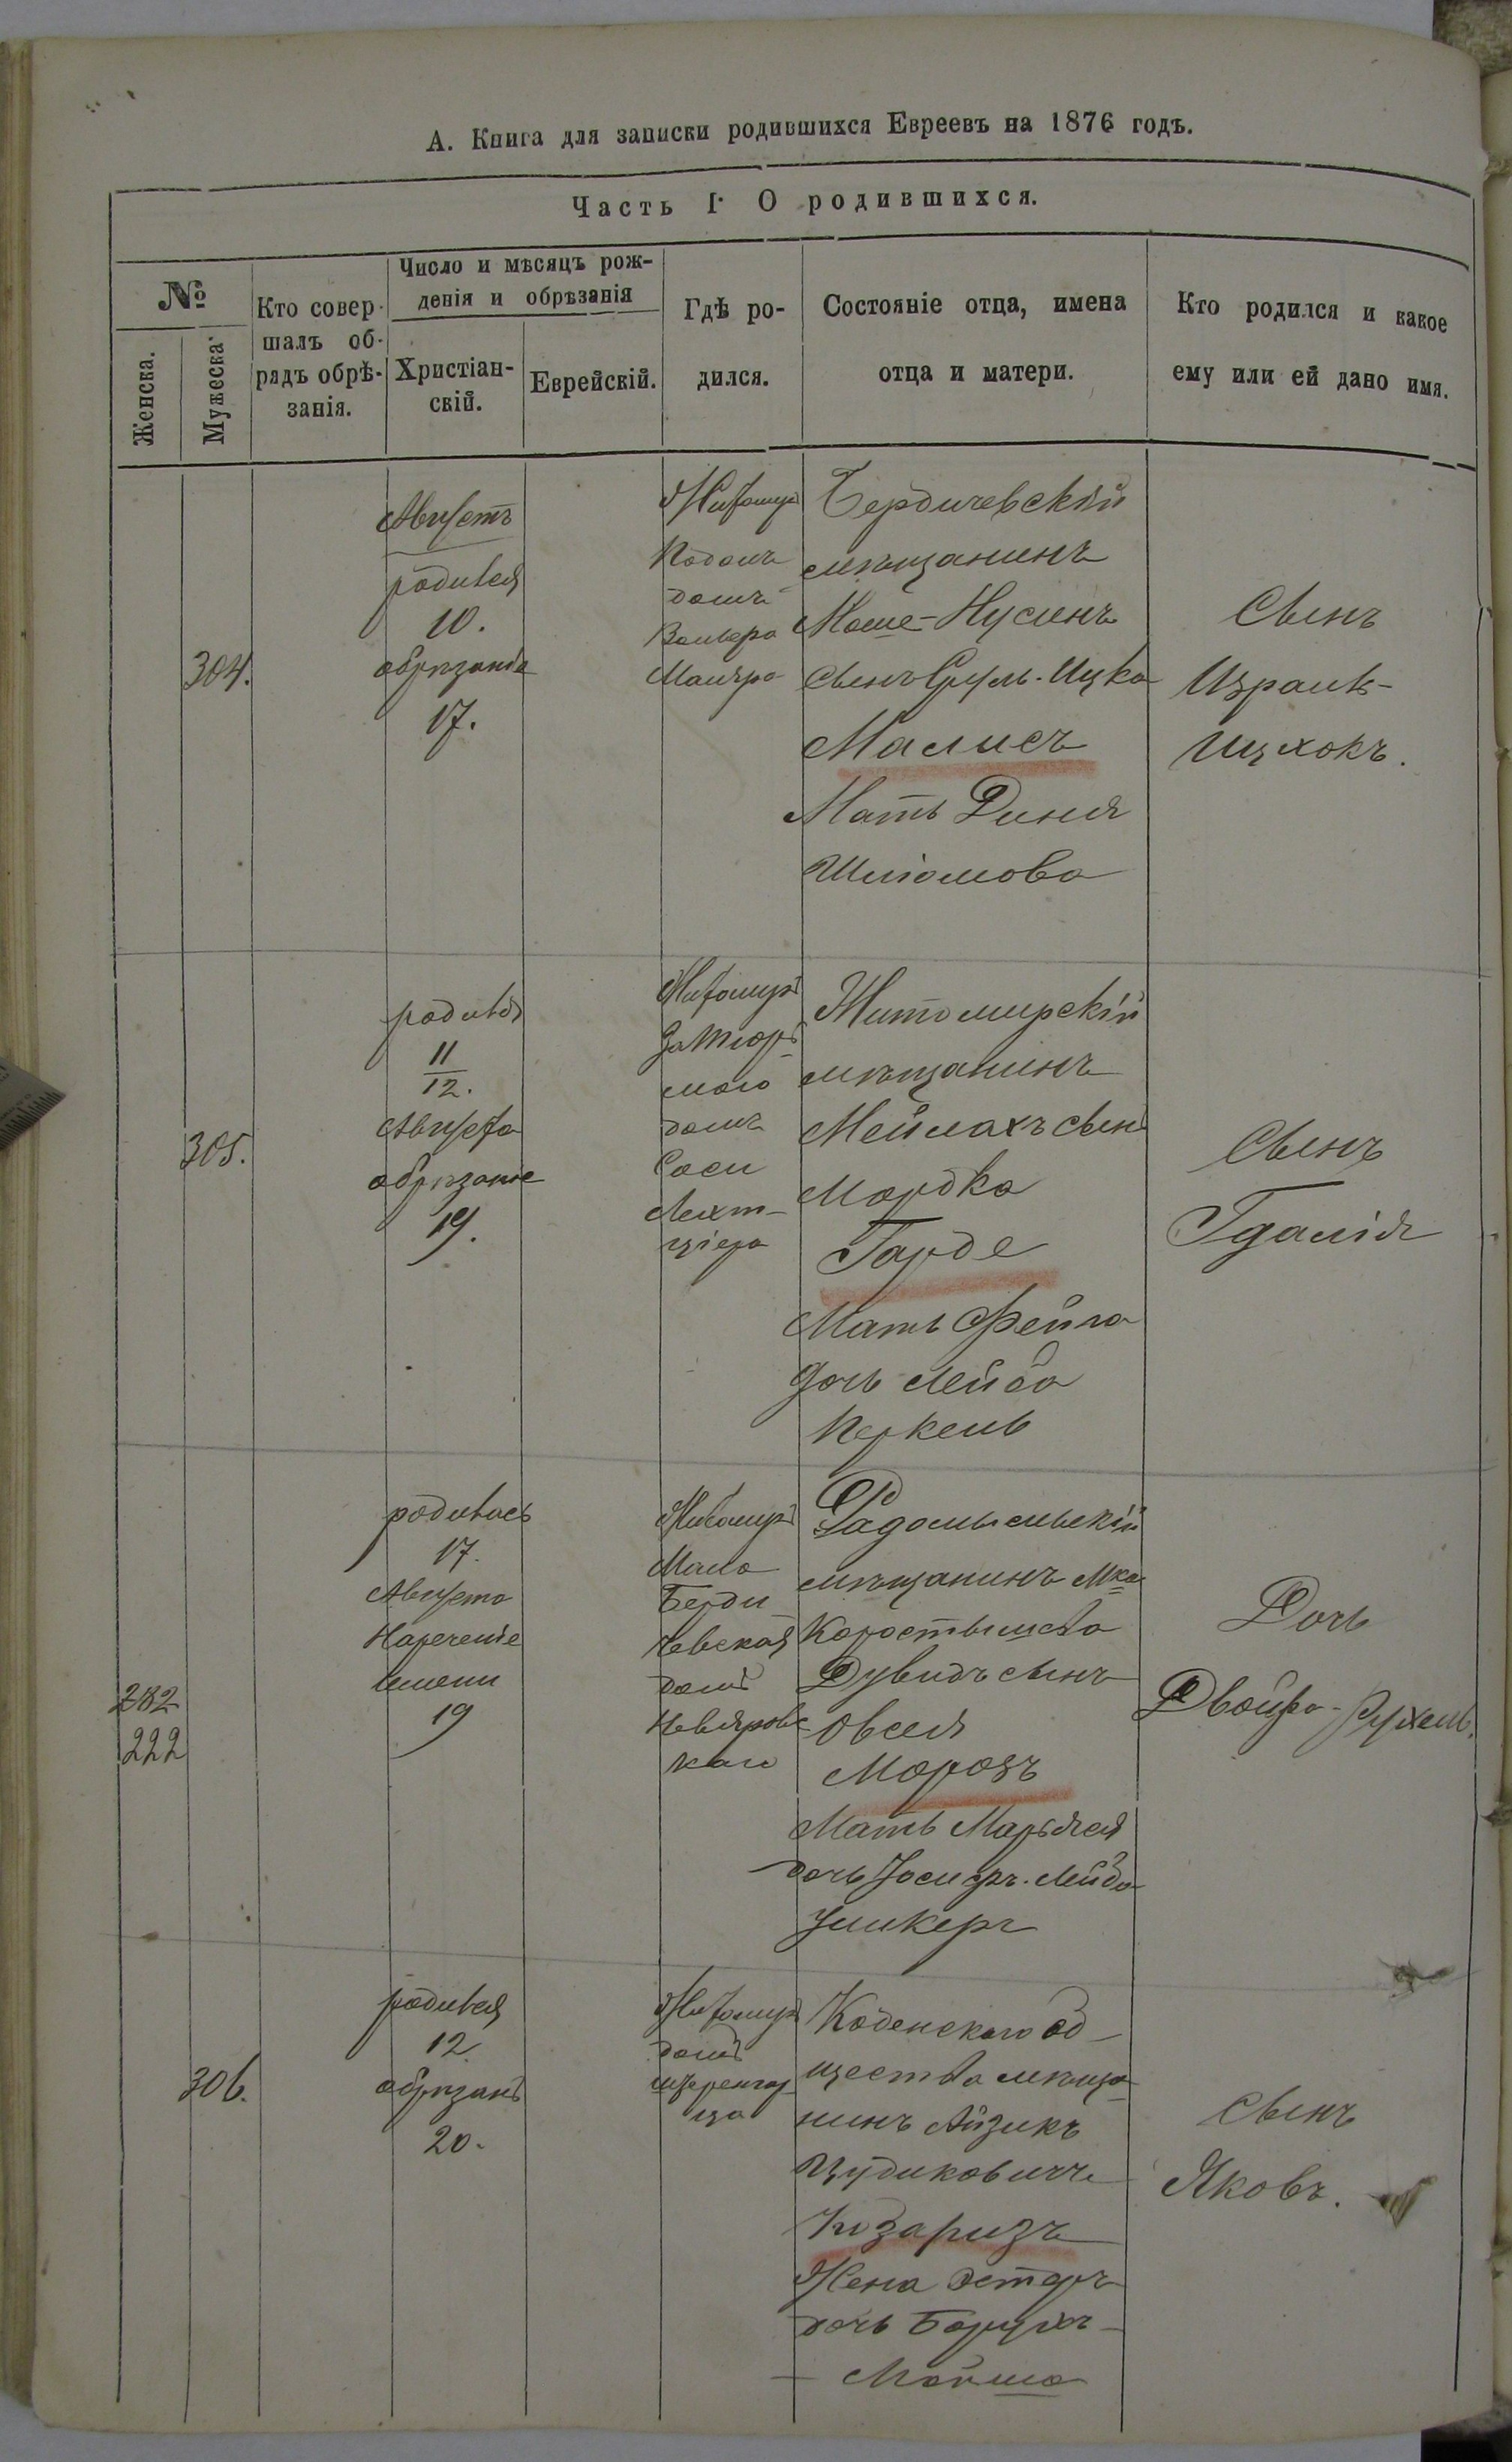 А. Книга для записки родившихся Евреевъ на 1876 годъ.
Часть I. О родившихся.
№
Женска.
Мужеска
Кто совер-
шалъ об-
рядъ обрѣ-
занія.
Число и мѣсяцъ рож-
денія и обрѣзанія
Христіан-
скій.
Еврейскій.
Гдѣ ро-
дился.
Состояніе отца, имена
отца и матери.
Кто родился и какое
ему или ей дано имя.
304.
Августъ
родился
10.
обрѣзанъ
17.
Житомиръ
Подолъ
домъ
Маляра
Бердичевскій
мѣщанинъ
Моше-Нусинъ
сынъ Сруль-Ицка
Малисъ
Мать Диня
Шліомова
Сынъ
Израиль-
Ицхокъ.
305.
родился
11
12.
Августа
обрѣзаніе
19.
Житомиръ
За Тюрь
мою
домъ
Соси
Лехт-
ціера
Житомирскій
мѣщанинъ
Меймахъ сынъ
Мордка
Гарде
Мать Фейга
дочь Лейба
Перкель
Сынъ
Гдалія
282
222
родилась
17.
Августа
Наречение
имени
19
Житомиръ
Мало
Берди
чевская
домъ
Невяровс
каго
Радомысльскій
мѣщанинъ Мка
Коростышева
Дувидъ сынъ
Овсея
Морозъ
Мать Марьяся
дочь Іосифъ-Лейба
Дочь
Двойра-Рухель.
306.
родился
12.
обрѣзанъ
20.
Житомиръ
домъ
Коденскаго об-
щества мѣща-
нинъ Айзикъ
Цудиковичъ
Козаризъ
Жена Эстеръ
дочь Борухъ-
Мойша
Сынъ
Яковъ.